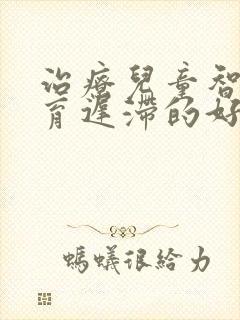 治療兒童智
育遲滯的好
螞蟻很給力